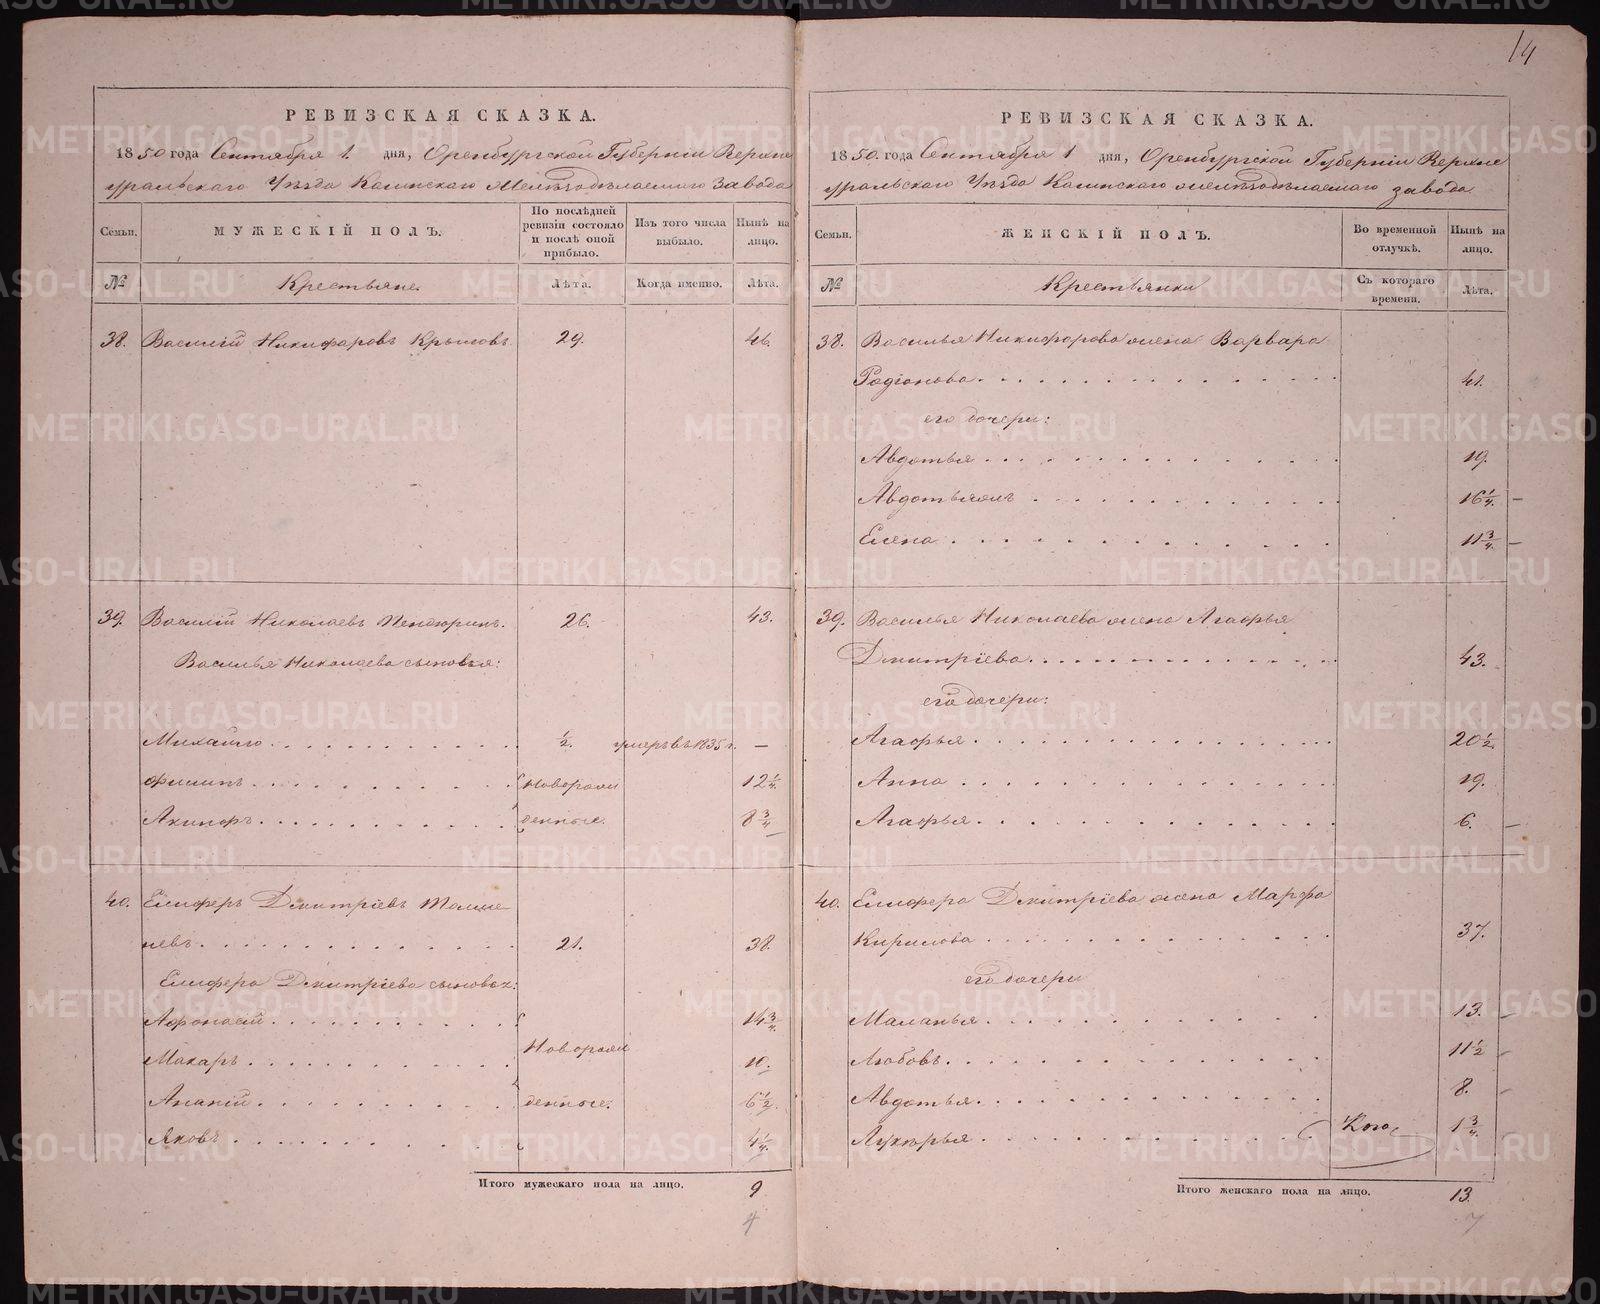 14
РЕВИЗСКАЯ СКАЗКА.
1850 года Сентября 1. дня, Оренбургской Губерніи Верхне
уральскаго Уѣзда Кагинскаго Желѣзодѣлаемаго Завода
Семьи.
МУЖЕСКІЙ ПОЛЪ.
По послѣдней ревизіи состояло и послѣ оной прибыло.
Изъ того числа выбыло.
Нынѣ на лицо.
№
Крестьяне.
Лѣта.
Когда именно.
Лѣта.
38. Василій Никифаровъ 29. 46.
39. Василій Николаевъ 26. 43.
Василья Николаева сыновья:
Михайло . . . ½. умеръ въ 1835 г. —
Филипъ . . . Ново рож 12¼.
Акинфъ . . . денные. 8¾
40. Елиферъ Дмитріевъ
невъ . . . 21. 38.
Елифера Дмитріева сыновья:
Афонасій . . . 14¾.
Макаръ . . . Новорож 10.
Ананій . . . денные. 6½.
Яковъ . . . 4¼.
Итого мужескаго пола на лицо. 9
4
РЕВИЗСКАЯ СКАЗКА.
1850. года Сентября 1 дня, Оренбургской Губерніи Верхне
уральскаго Уѣзда Кагинскаго желѣзодѣлаемаго завода
Семьи.
ЖЕНСКІЙ ПОЛЪ.
Во временной отлучкѣ.
Нынѣ на лицо.
№
Крестьянки
Съ котораго времени.
Лѣта.
38. Василья Никифорова жена Варвара
Родіонова . . . 41.
его дочери:
Авдотья . . . 19.
Авдотья . . . 16¼. —
Елена . . . 11¾. —
39. Василья Николаева жена Агафья
Дмитріева . . . 43.
его дочери:
Агафья . . . 20½.
Анна . . . 19.
Агафья . . . 6. —
40. Елифера Дмитріева жена Марфа
Кирилова . . . 37.
его дочери
Маланья . . . 13. —
Любовь . . . 11½ —
Авдотья . . . 8. —
Лукерья . . . 1¾. —
Итого женскаго пола на лицо. 13.
7
METRIKI.GASO-URAL.RU